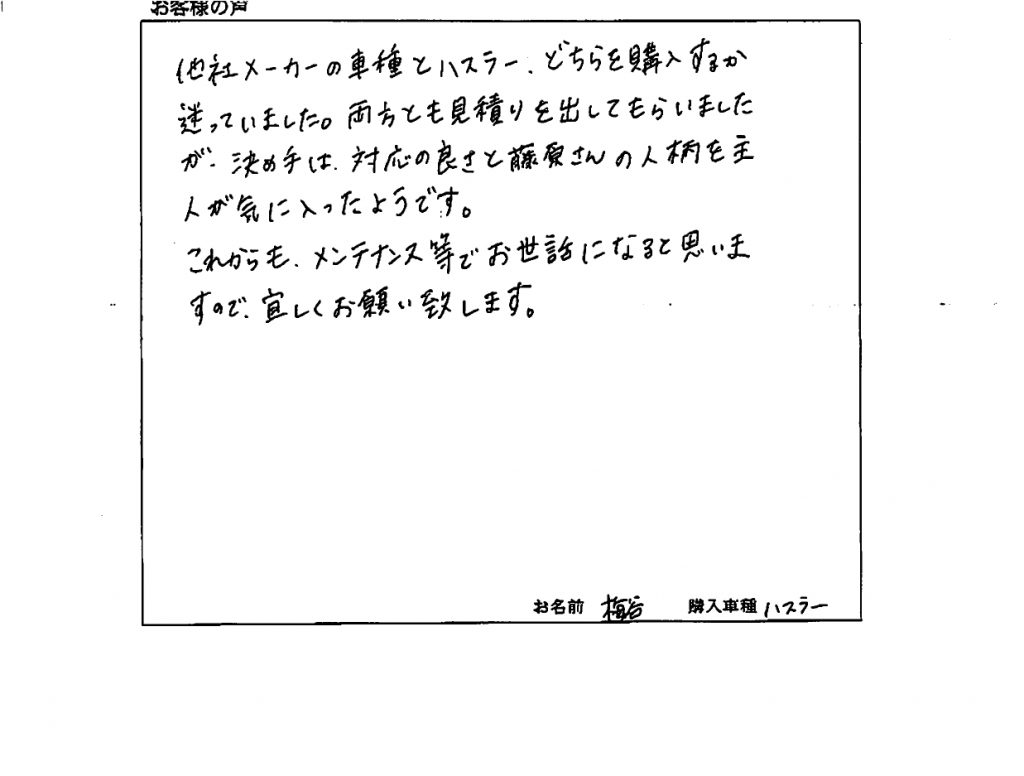 お客様の声
他社メーカーの車種とハスラー、どちらを購入するか
迷っていました。両方とも見積りを出してもらいました
が、決め手は、対応の良さと藤原さんの人柄を主
人が気に入ったようです。
これからも、メンテナンス等でお世話になると思いま
すので、宜しくお願い致します。
お名前 梅谷 購入車種 ハスラー